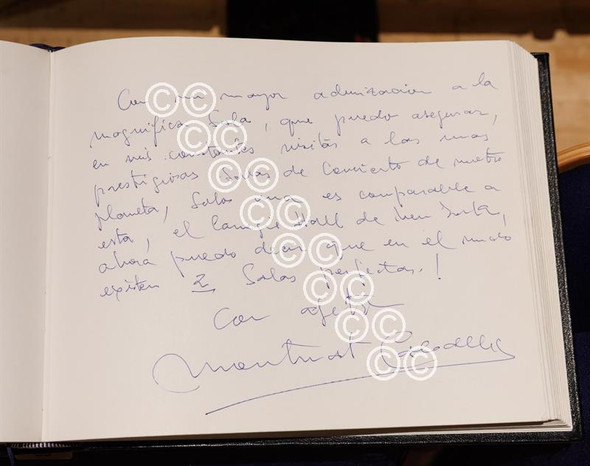 Con mi mayor admiracion a la
magnifica Sala, que puedo asegurar,
en mis constantes visitas a las mas
prestigiosas Salas de Concierto de nuestro
planeta, Solo una es comparable a
esta, el Carnegie Hall de New York,
ahora puedo decir que en el mundo
existen 2 Salas perfectas!
Con afecto
Montserrat Caballé